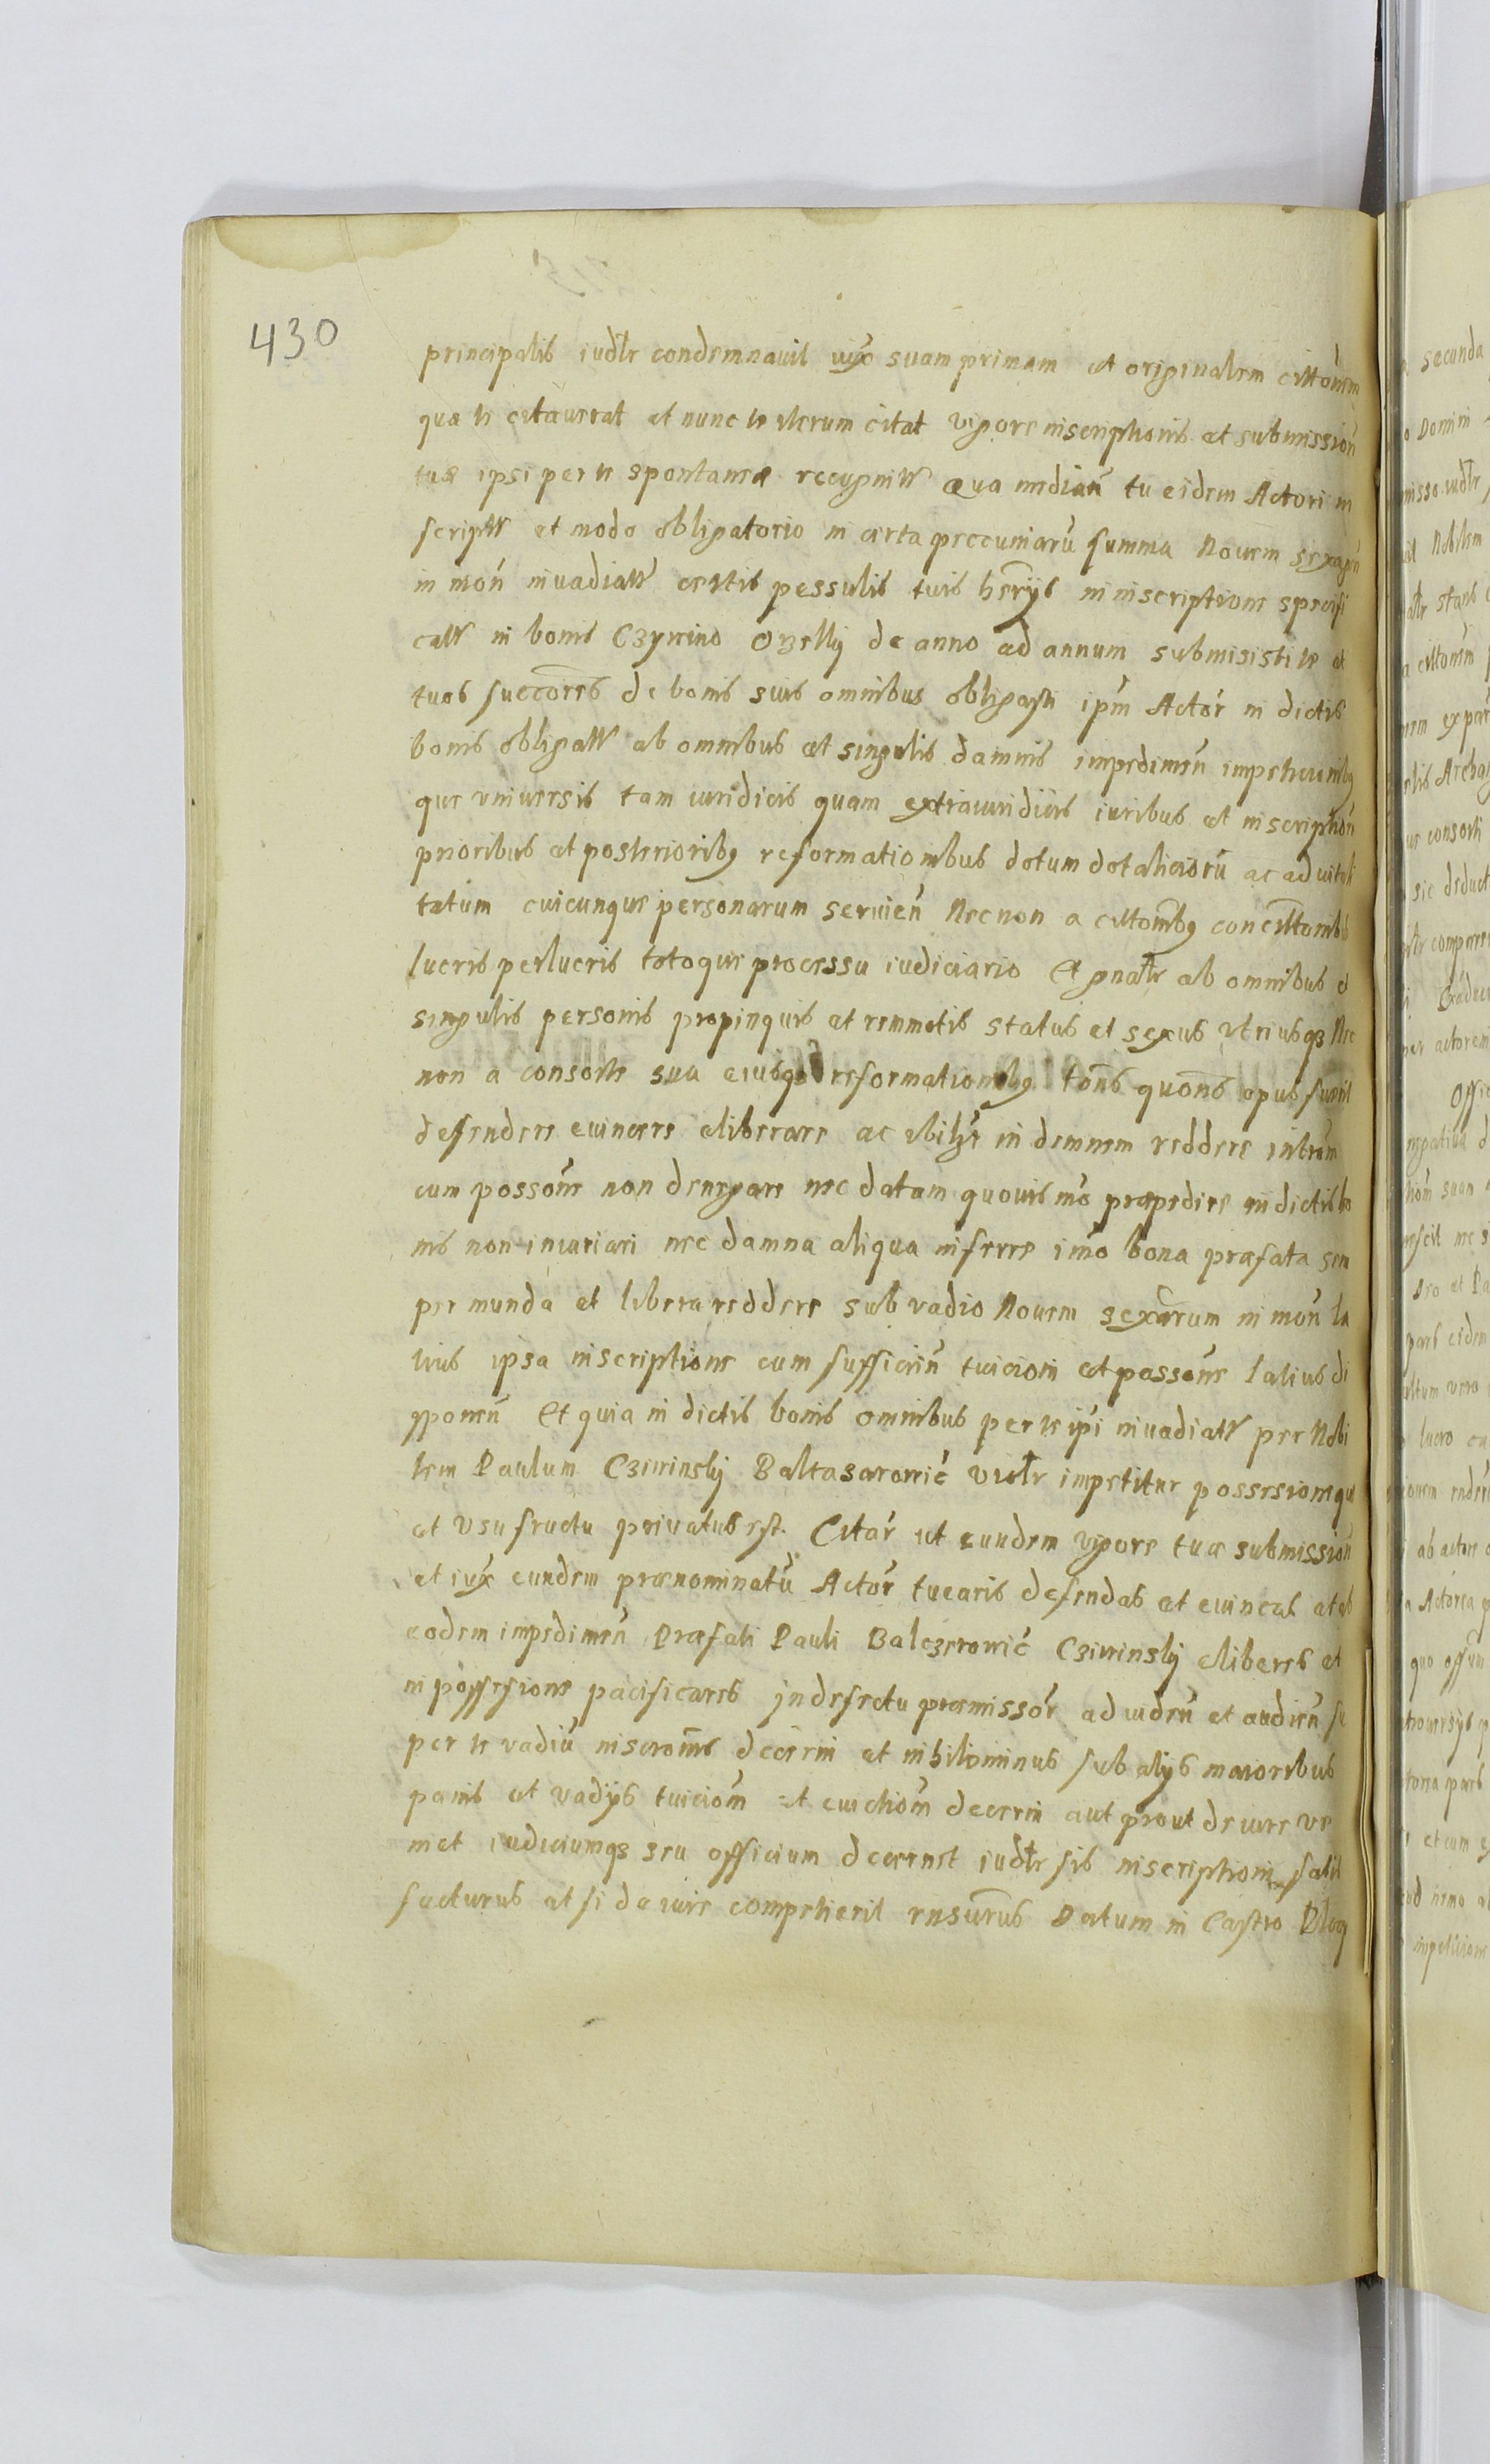 430
principalis iudlr condemnavit iux suam primam et originalem cittonem
qua te citaverat et nunc te iterum citat vigore inscriptionis et submission
tuæ ipsi per te spontaneæ recognitæ Qua median tu eidem Actori in
script et modo obligatorio in certa preecuniarū summa Novem sexagen
in mon invadiatt certis pessulis tuis hsrijs in inscriptione specifi
catt in bonis Czywino Ozelky de anno ad annum submisisti te et
tuos succores de bonis suis omnibus obligasti ipm Actor in dictis
bonis obligatt ab omnibus et singulis damnis impedimen impeticionibꝯ
que universis tam iuridicis quam extraiuridicis iuribus et inscription
prioribus et posterioribꝯ reformationibus dotum dotaliciorū ac advitali
tatum cuicunque personarum servien Necnon a cittombꝯ concittombꝯ
lucris perlucris totoque processu iudiciario Et gnalr ab omnibus et
singulis personis propinquis et remmotis status et sexus utriusqȝ Nec
non a consorte sua eiusqȝ reformationibꝯ tons quons opus fuerit
defendere evincere eliberare ac ubilȝ indemnem reddere introm
cum possone non denegare nec datam quovis mo præpedire in dictis bo
nis non iniuriari nec damna aliqua inferre imo bona præfata sem
per munda et libera reddere sub vadio Novem sexarum in mon la
tius ipsa inscriptione cum sufficien tuicioni et possone latius di
sponen Et quia in dictis bonis omnibus per te ipi invadiatt per Nobi
lem Paulum Cziwinsky Baltasarowic violr impetitur possesioneque
et usufructu privatus est. Citar ut eundem vigore tuæ submission
et iux eundem prænominatū Actor tuearis defendas et evincas et ab
eodem impedimen Præfati Pauli Balczerowic Cziwinsky eliberes et
in possesione pacificares in defectu præmissor ad viden et audien su
per te vadiū inscromis decerni et nihilominus sub alijs maioribus
pœnis et vadijs tuiciom et evictiom decerni aut prout de iure ve
niet iudiciumqȝ seu officium decernet iudlr sis inscriptioni satis
facturus et si de iure competierit rnsurus Datum in Castro Ploc